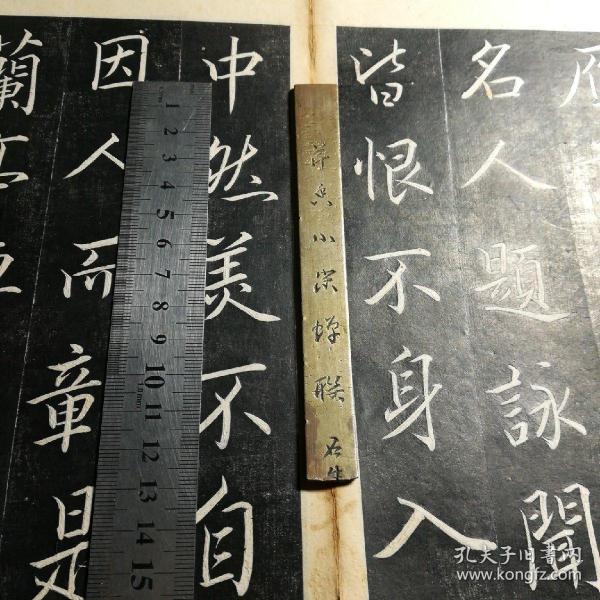 名人題詠閒
皆恨不身入
小宋蟬聯
石
中然美不自
因人而章是
蘭亭
1 2 3 4 5 6 7 8 9 10 11 12 13 14 15
孔夫子旧书网
www.kongfz.com